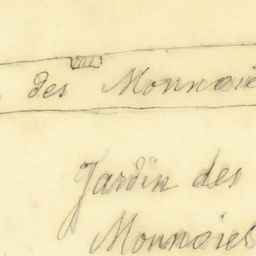 des Monnoie
Jardin des
Monnoies